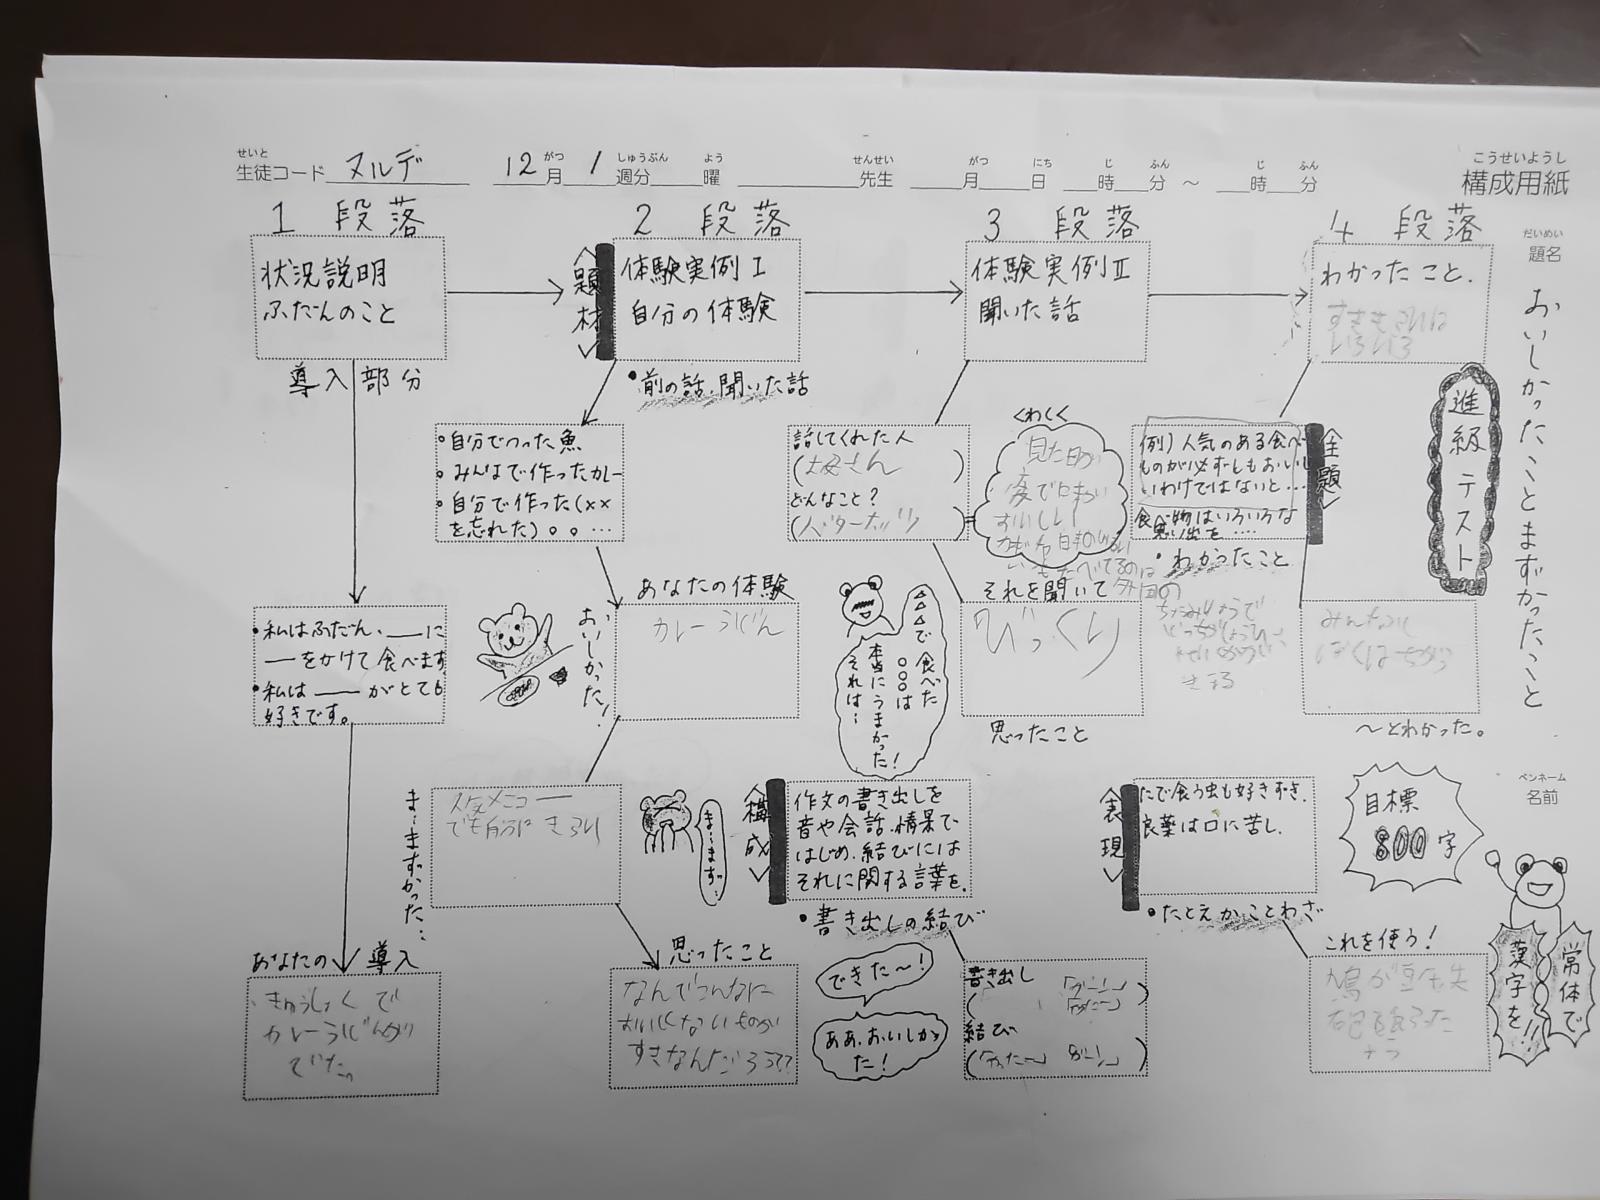 せいと
生徒コード ヌルデ 12 がつ 月 1 しゅうぶん 週分 よう 曜 せんせい 先生 がつ 月 にち 日 じ 時 ふん 分 ～ じ 時 ふん 分
こうせいようし
構成用紙
だいめい
題名
おいしかったことまずかったこと
進級テスト
ペンネーム
名前
目標
800字
常体で
漢字を!!
1 段落
状況説明
ふだんのこと
導入部分
・私はふだん、――に
――をかけて食べます
・私は――がとても
好きです。
あなたの導入
きゅうしょくで
カレーうどんが
でた。
2 段落
〈題材〉
体験実例Ⅰ
自分の体験
・前の話、聞いた話
・自分でつった魚
・みんなで作ったカレー
・自分で作った(××
を忘れた)。。…
あなたの体験
カレーうどん
おいしかった!
ま…まずかった…
人気メニュー
でも自分は きらい
ま…まず…
思ったこと
なんでこんなに
おいしくないものが
すきなんだろう??
3 段落
体験実例Ⅱ
聞いた話
話してくれた人
(お母さん)
どんなこと?
くわしく
見た目が
おいしい
それを聞いて
びっくり
思ったこと
△△で食べた
○○○は
本当にうまかった!
それは…
〈構成〉
作文の書き出しを
音や会話、情景で
はじめ、結びには
それに関する言葉を。
・書き出しの結び
できた～!
ああ、おいしかった!
書き出し
結び
4 段落
わかったこと.
すききらいは
いろいろ
〈主題〉
例)人気のある食べ
ものが必ずしもおいし
いわけではないと…
食べ物はいろいろな
思い出を……
・わかったこと
みんなに
～とわかった。
〈表現〉
たで食う虫も好きずき.
良薬は口に苦し.
・たとえかことわざ
これを使う!
鳩が豆鉄
砲を食らった